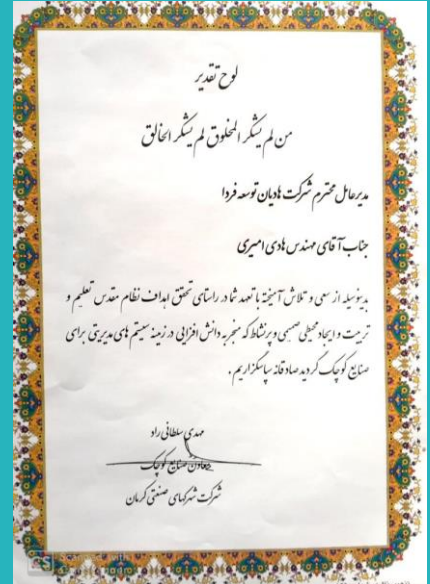 لوح تقدیر
من لم یشکر المخلوق لم یشکر الخالق
مدیرعامل محترم شرکت هادیان توسعه فردا
جناب آقای مهندس هادی امیری
بدینوسیله از سعی و تلاش آمیخته با تعهد شما در راستای تحقق اهداف نظام مقدس تعلیم و
تربیت و ایجاد محیطی صمیمی و پرنشاط که منجر به دانش افزایی در زمینه سیستم های مدیریتی برای
صنایع کوچک گردید صادقانه سپاسگزاریم.
مهدی سلطانی راد
معاون صنایع کوچک
شرکت شهرکهای صنعتی کرمان